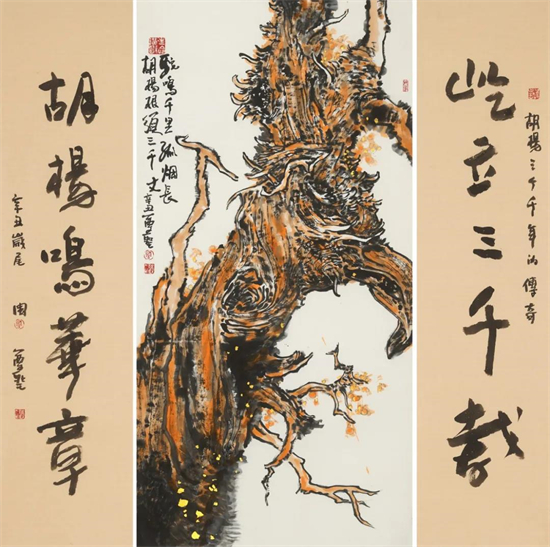 屹立三千载
胡楊三个千年的傳奇
驼鳴千里孤烟长
胡楊根須三千丈 辛丑
胡楊鳴華章
辛丑歲尾